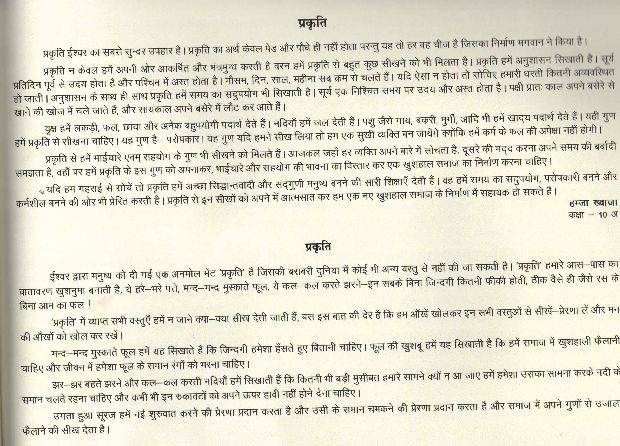 प्रकृति
प्रकृति ईश्वर का सबसे सुन्दर उपहार है। प्रकृति का अर्थ केवल पेड और पौधे ही नहीं होता परन्तु यह तो हर वह चीज है जिसका निर्माण भगवान ने किया है।
प्रकृति न केवल हमें अपनी ओर आकर्षित और मंत्रमुग्ध करती है वरन हमें प्रकृति से बहुत कुछ सीखने को भी मिलता है। प्रकृति हमें अनुशासन सिखाती है। सूर्य
प्रतिदिन पूर्व से उदय होता है और पश्चिम में अस्त होता है। मौसम, दिन, साल, महीना सब क्रम से चलते हैं। यदि ऐसा न होता तो सोचिए हमारी धरती कितनी अव्यवस्थित
हो जाती। अनुशासन के साथ ही साथ प्रकृति हमें समय का सदुपयोग भी सिखाती है। सूर्य एक निश्चित समय पर उदय और अस्त होता है। पक्षी प्रातः काल अपने बसेरे से
खाने की खोज में चले जाते हैं, और सायकाल अपने बसेरे में लौट कर आते हैं।
वृक्ष हमें लकड़ी, फल, छाया और अनेक बहुपयोगी पदार्थ देते हैं। नदियाँ हमें जल देती हैं। पशु जैसे गाय, बकरी, मुर्गी, आदि भी हमें खादय पदार्थ देते हैं। यही गुण
हमें प्रकृति से सीखना चाहिए। यह गुण है– परोपकार। यह गुण यदि हमने सीख लिया तो हम एक सुखी व्यक्ति बन जायेंगे क्योंकि हमें कर्म के फल की अपेक्षा नहीं होगी।
प्रकृति से हमें भाईचारे एवम् सहयोग के गुण भी सीखने को मिलते हैं। आजकल जहां हर व्यक्ति अपने बारे में सोचता है, दूसरे की मदद करना अपने समय की बर्बादी
समझता है, वहाँ पर हमें प्रकृति के इस गुण को अपनाकर, भाईचारे और सहयोग की भावना का विस्तार कर एक खुशहाल समाज का निर्माण करना चाहिए।
यदि हम गहराई से सोचें तो प्रकृति हमें अच्छा सिद्धान्तवादी और सद्गुणी मनुष्य बनने की सारी शिक्षाएँ देती हैं। वह हमें समय का सदुपयोग, परोपकारी बनने और
कर्मशील बनने की ओर भी प्रेरित करती है। प्रकृति से इन सीखों को अपने में आत्मसात कर हम एक नए खुशहाल समाज के निर्माण में सहायक हो सकते है।
हम्जा ख्वाजा
कक्षा – 10 अ
प्रकृति
ईश्वर द्वारा मनुष्य को दी गई एक अनमोल भेंट 'प्रकृति' है जिसकी बराबरी दुनिया में कोई भी अन्य वस्तु से नहीं की जा सकती है। 'प्रकृति' हमारे आस–पास का
वातावरण खुशनुमा बनाती है, ये हरे–भरे पत्ते, मन्द–मन्द मुस्काते फूल, ये कल–कल करते झरने–इन सबके बिना जिन्दगी कितनी फीकी होती, ठीक वैसे ही जैसे रस के
बिना आम का फल !
'प्रकृति' में व्याप्त सभी वस्तुएँ हमें न जाने क्या–क्या सीख देती जाती हैं, बस इस बात की देर है कि हम आँखें खोलकर इन सभी वस्तुओं से सीखें–प्रेरणा लें और मन
की आँखों को खोल कर रखें।
मन्द–मन्द मुस्काते फूल हमें यह सिखाते हैं कि जिन्दगी हमेशा हँसते हुए बितानी चाहिए। फूल की खुशबू हमें यह सिखाती है कि हमें समाज में खुशहाली फैलानी
चाहिए और जीवन में हमेशा फूल के समान रंगों को भरना चाहिए।
झर–झर बहते झरने और कल–कल करती नदियाँ हमें सिखाती हैं कि कितनी भी बड़ी मुसीबत हमारे सामने क्यों न आ जाए हमें हमेशा उसका सामना करके नदी के
समान चलते रहना चाहिए और कभी भी इन रुकावटों को अपने ऊपर हावी नहीं होने देना चाहिए।
उगता हुआ सूरज हमें नई शुरुवात करने की प्रेरणा प्रदान करता है और उसी के समान चमकने की प्रेरणा प्रदान करता है और समाज में अपने गुणों से उजाला
फैलाने की सीख देता है।